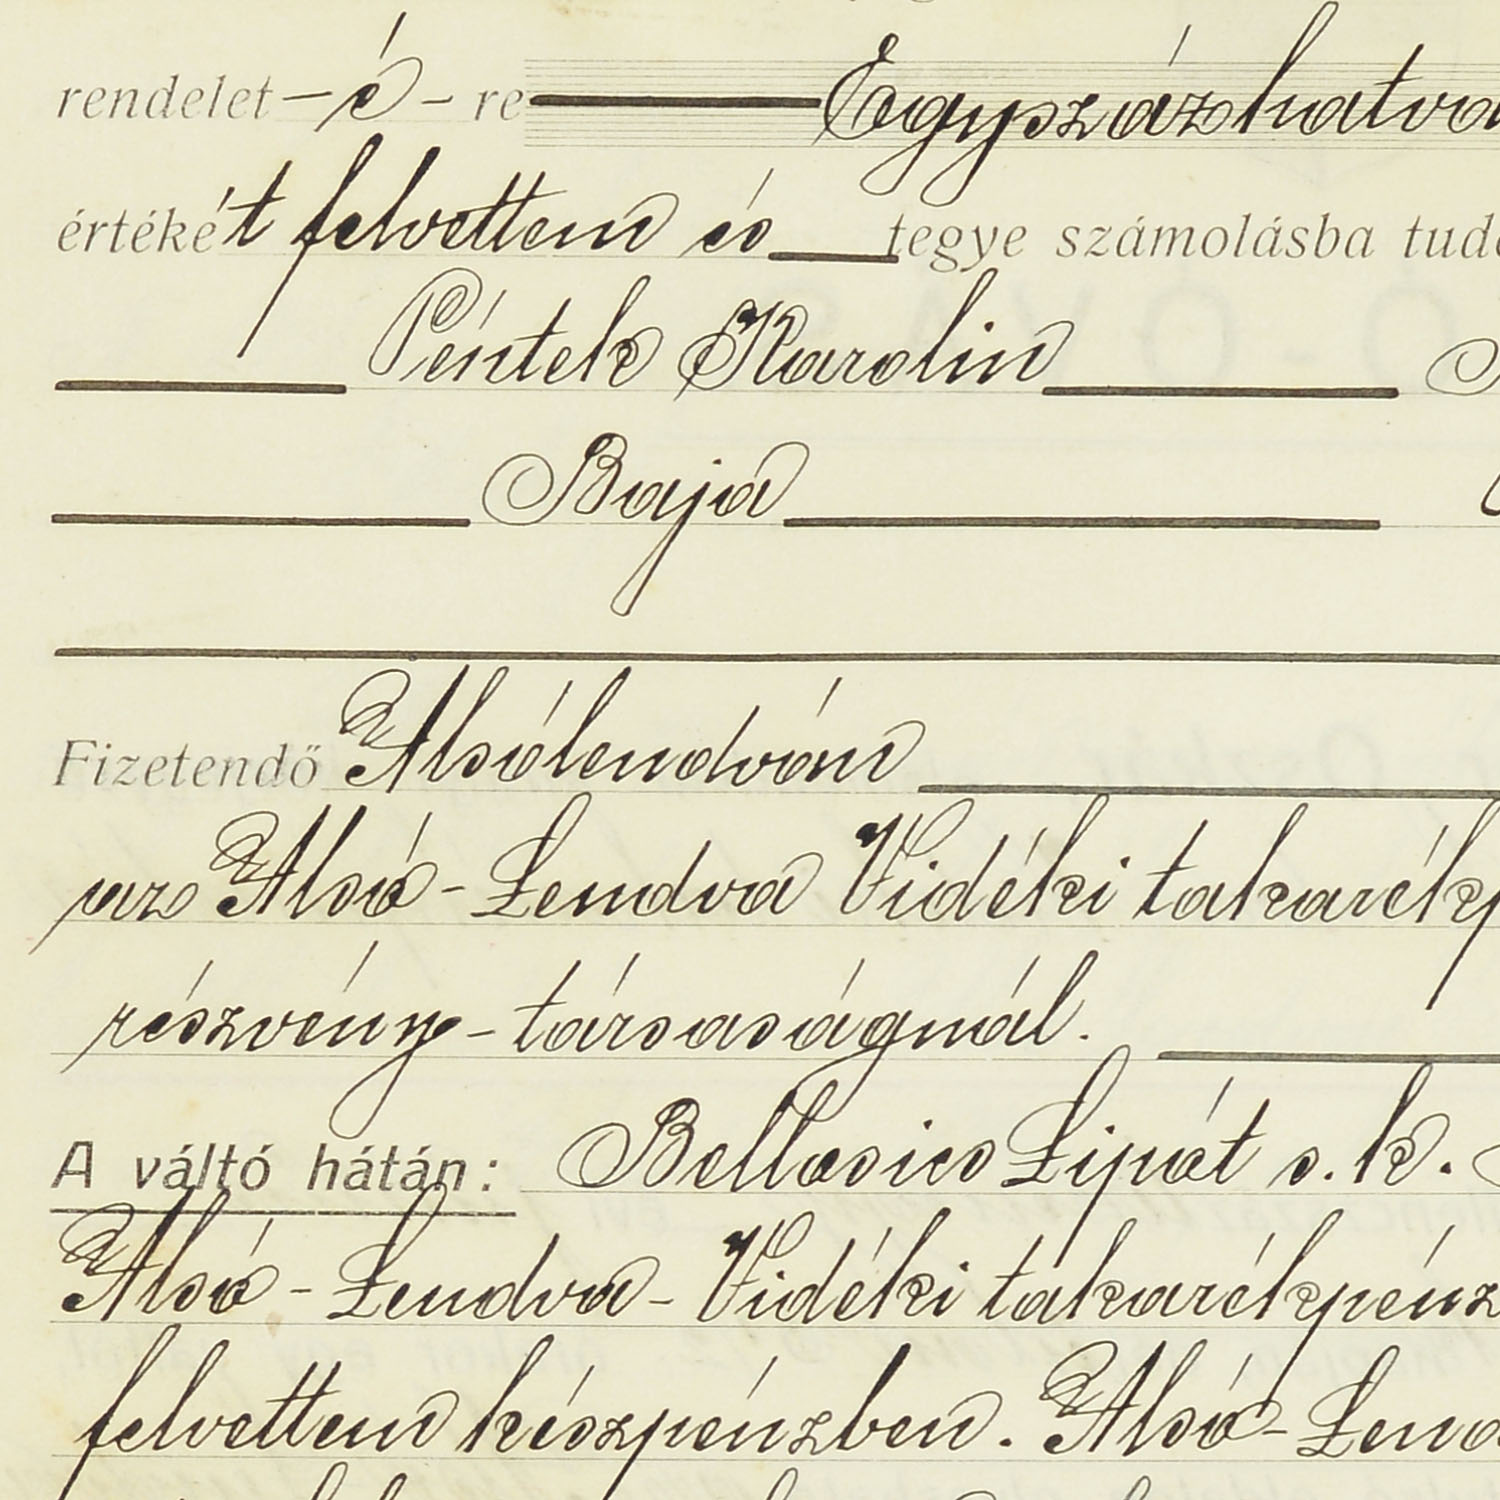 rendelet – é – re Egyszázhatva
értékét felvettem és tegye számolásba tud
Péntek Karolin
Baja
Fizetendő Alsólendván
az Alsó-Lendva Vidéki takarékp
részvény-társaságnál.
A váltó hátán: Bellosics Lipót s. k.
Alsó-Lendva-Vidéki takarékpénz
felvettem készpénzben. Alsó-Lend